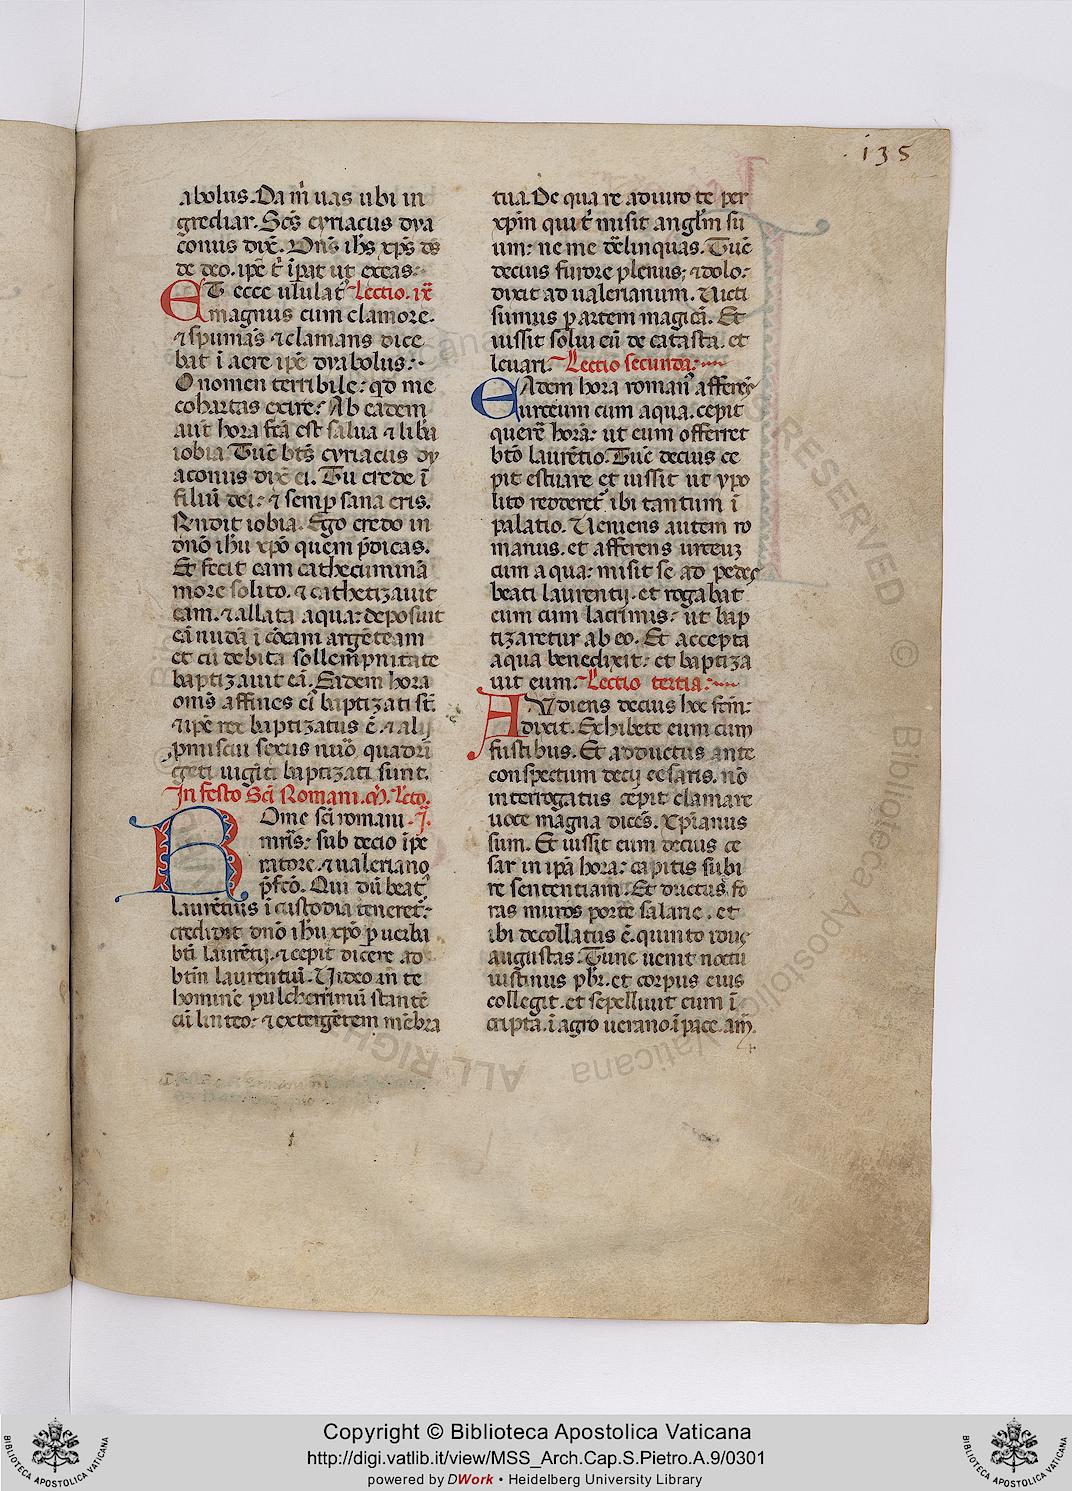 135
abolus. Da m̄ uas ubi in
grediar. Sc̄s cyriacus dya
conus dix̄. Dn̄s ih̄s xp̄s d̄s
de deo. ip̄e t̄ īpat ut exeas.
ET ecce ululat̄ Lectio. ix̄
magnus cum clamore.
⁊ spumās ⁊ clamans dice
bat ī aere ip̄e dyabolus:
O nomen terribile: qd me
cohartas exire: Ab eadem
aut̄ hora fc̄a est salua ⁊ lib̄a
iobia. Tūc bt̄s cyriacus dy
aconus dix̄ ei. Tu crede ī
filiū dei: ⁊ semp̄ sana eris.
Rn̄dit iobia. Ego credo in
dn̄o ih̄u xp̄o quem p̄dicas.
Et fecit eam cathecuminā
more solito. ⁊ cathetizauit
eam. ⁊ allata aqua: deposuit
eā nudā ī cōcam argēteam
et cū debita sollempnitate
baptizauit eā. Eadem hora
om̄s affines ei̓ baptizati st̄.
⁊ ip̄e rex baptizatus ē. ⁊ alij
p̄miscui sexus nūo quadrī
geti uigīti baptizati sunt.
In festo Sc̄i Romani. m̄. Lc̄o.
ROme sc̄i romani. j̄.
mr̄is: sub decio īpe
ratore. ⁊ ualeriano
p̄fc̄o. Qui dū beat̓
laurētius ī custodia teneret̄:
credidit dn̄o ih̄u xp̄o p uerba
bt̄i laurētij. ⁊ cepit dicere ad
bt̄m laurentiū. Uideo an te
hominē pulcherrimū stantē
cū linteo: ⁊ extergētem mēbra
tua. De qua re adiuro te per
xp̄m qui t̄ misit angl̄m su
um: ne me d̄elinquas. Tūc
decius furore plenus: ⁊ dolo:
dixit ad ualerianum. Uicti
sumus p artem magicā. Et
iussit solui eū de catasta. et
leuari. Lectio secunda:
EAdem hora roman̓ afferēs
urceum cum aqua. cepit
querē horā: ut eum offerret
bt̄o laurētio. Tūc decius ce
pit estuare et iussit ut ypo
lito redderet̄ ibi tantum ī
palatio. Ueniens autem ro
manus. et afferens urceuz
cum aqua: misit se ad pedes
beati laurentij. et rogabat
eum cum lacrimis: ut bap
tizaretur ab eo. Et accepta
aqua benedixit: et baptiza
uit eum. Lectio tertia:
AUdiens decius hoc fc̄m:
dixit. Exhibete eum cum
fustibus. Et adductus ante
conspectum decij cesaris. nō
interrogatus cepit clamare
uoce magna dicēs. Xp̄ianus
sum. Et iussit eum decius ce
sar in ip̄a hora: capitis subi
re sententiam. Et ductus fo
ras muros porte salarie. et
ibi decollatus ē. quinto idus
augustas. Tunc uenit noctu
iustinus pbr̄. et corpus eius
collegit. et sepelliuit eum ī
cripta. ī agro uerano. ī pace. am̄.
Copyright © Biblioteca Apostolica Vaticana
http://digi.vatlib.it/view/MSS_Arch.Cap.S.Pietro.A.9/0301
powered by DWork • Heidelberg University Library
BIBLIOTECA APOSTOLICA VATICANA
BIBLIOTECA APOSTOLICA VATICANA